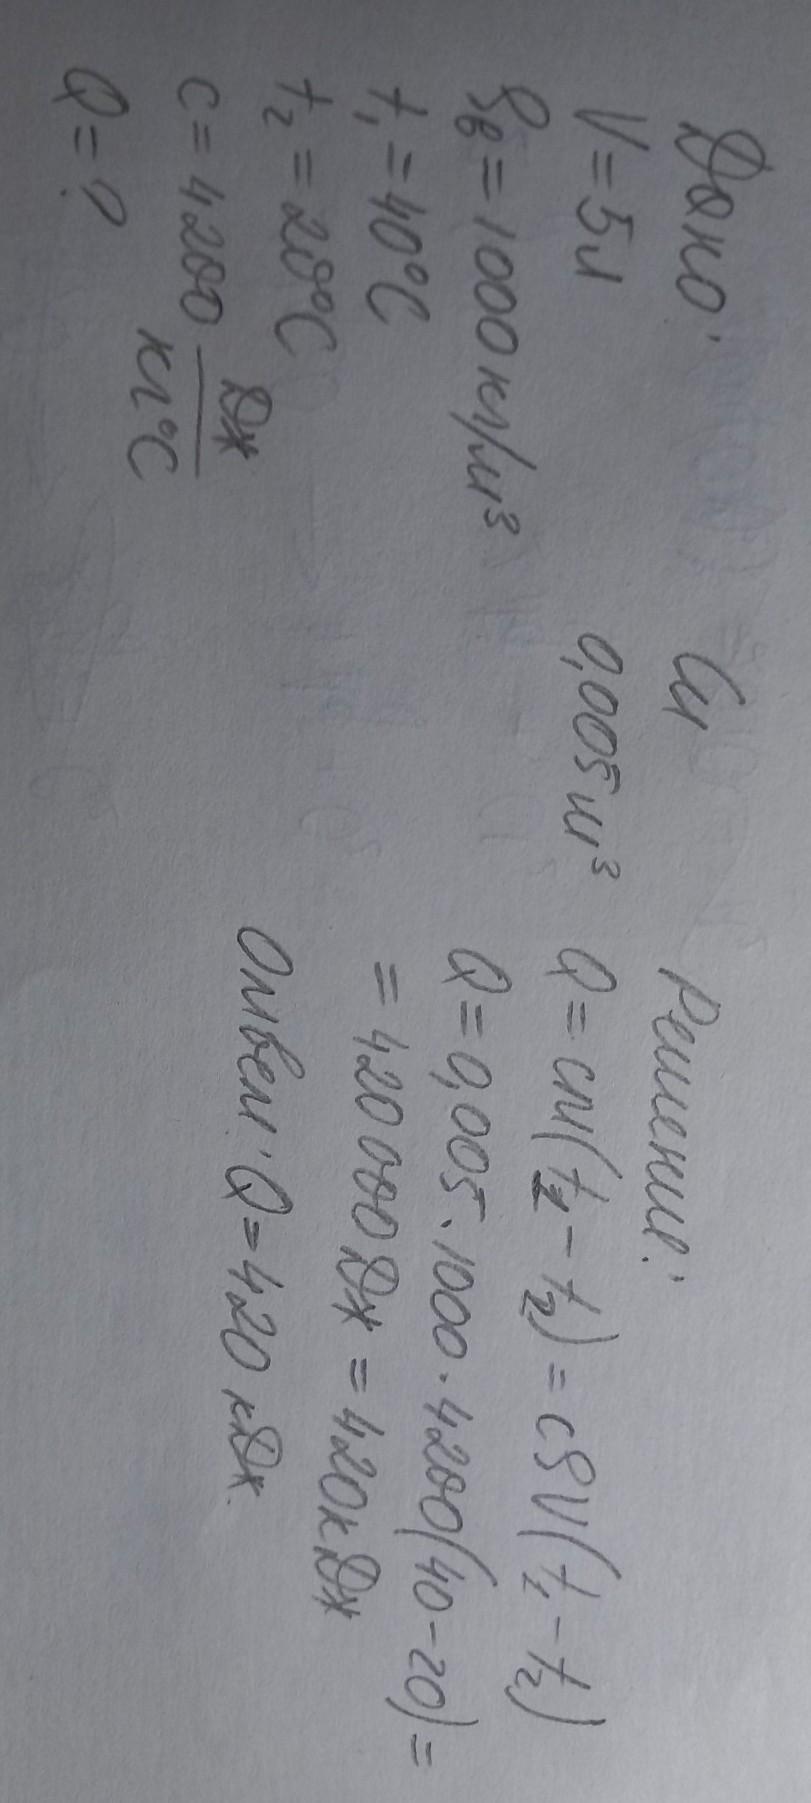 Дано:
V = 5л
ρв = 1000 кг/м³
t₁ = 40°C
t₂ = 20°C
c = 4200 Дж/кг°C
Q = ?
Си
0,005 м³
Решение:
Q = cm(t₁ - t₂) = cρV(t₁ - t₂)
Q = 0,005 · 1000 · 4200(40 - 20) =
= 420 000 Дж = 420 кДж
Ответ: Q = 420 кДж.